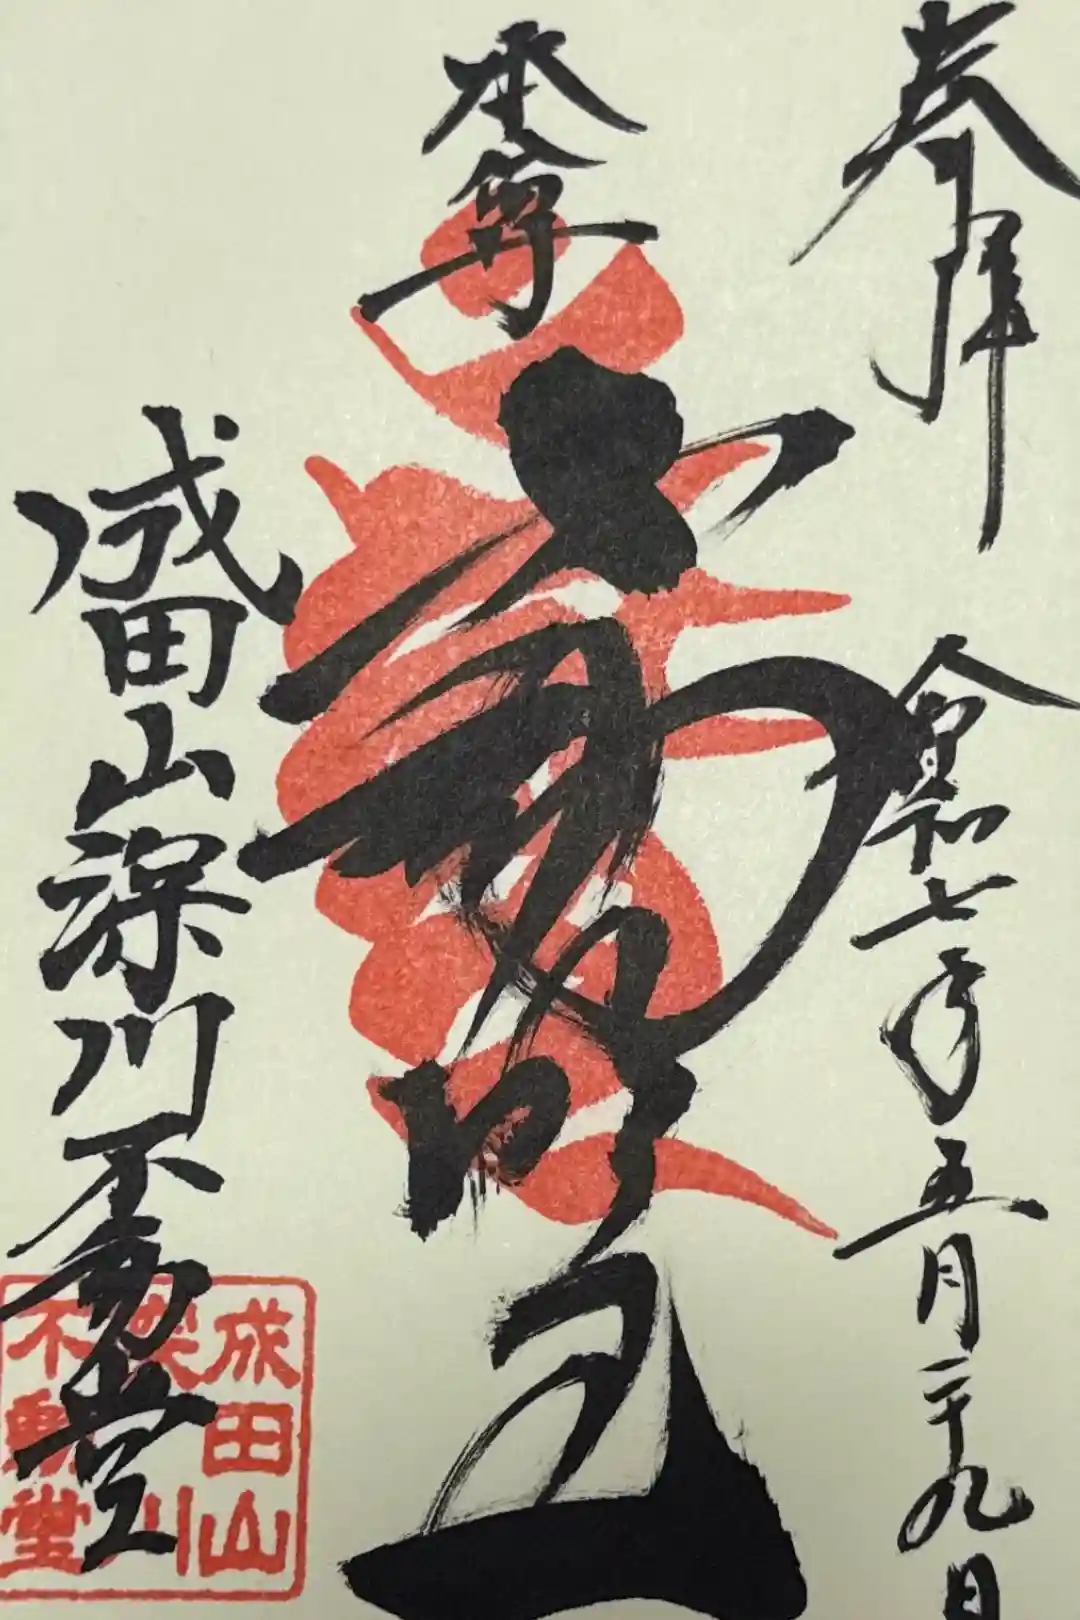 奉拝
令和七年五月二十九日
本尊
不動明王
成田山深川不動堂
成田山
深川
不動堂